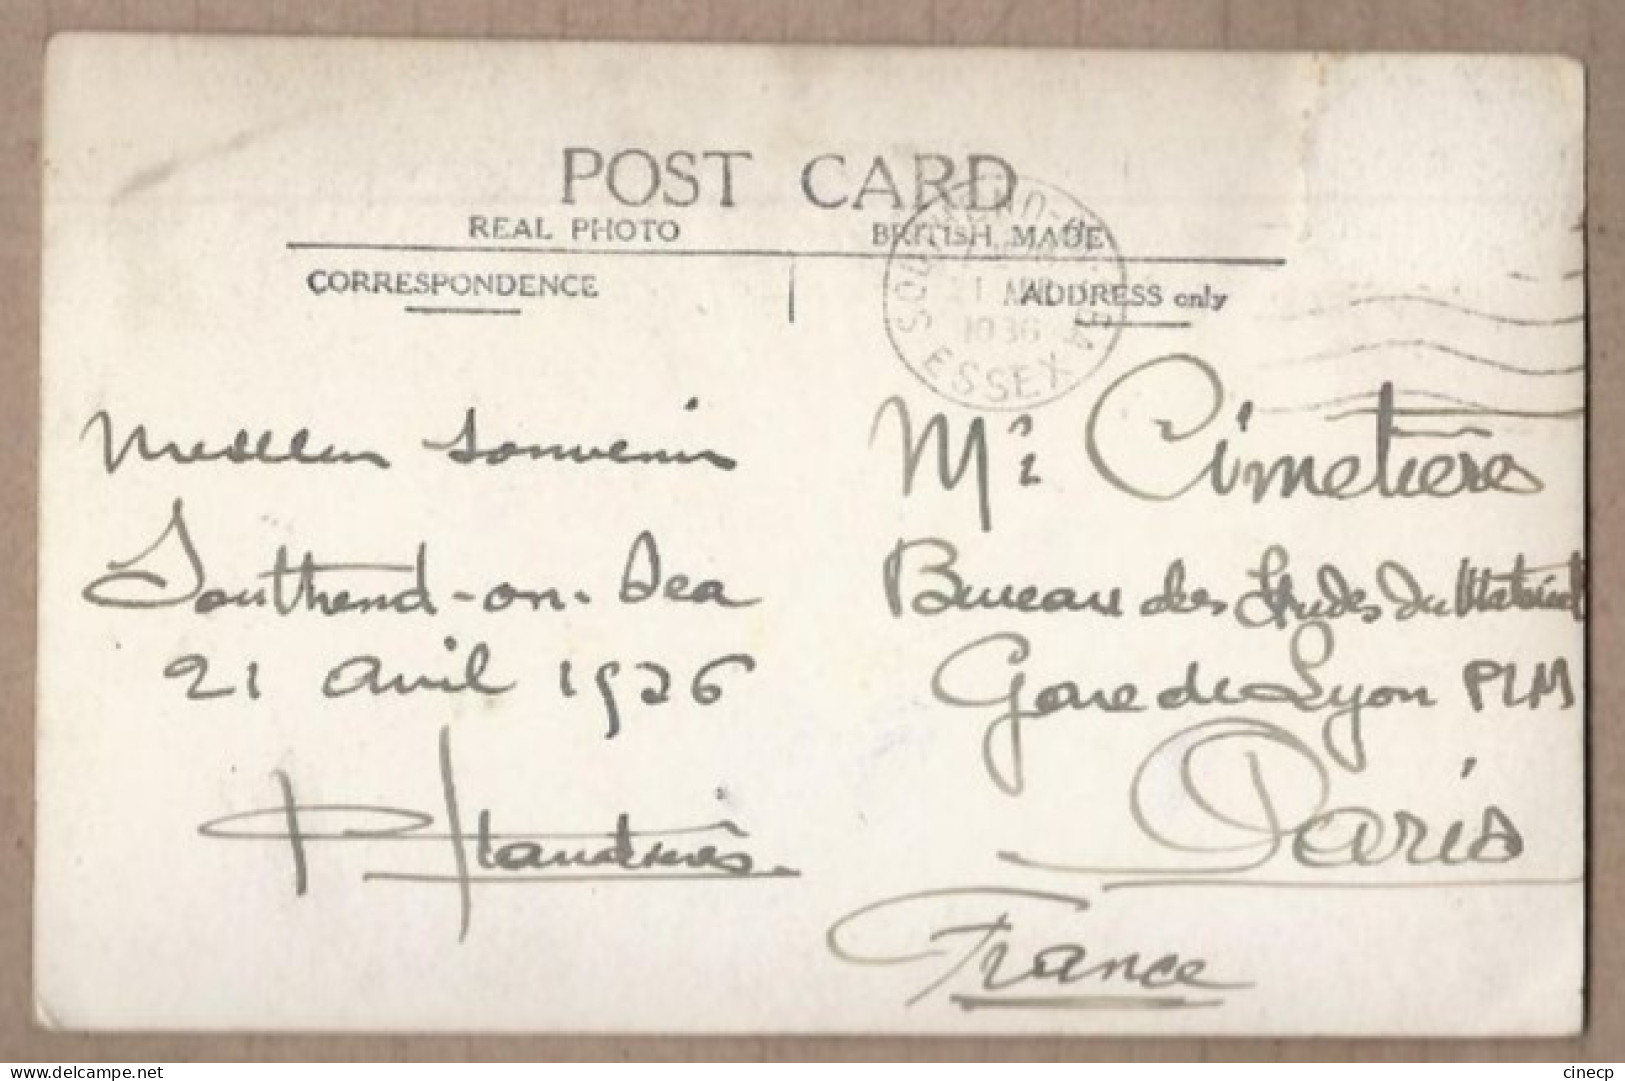 POST CARD
REAL PHOTO BRITISH MADE
CORRESPONDENCE
ADDRESS only
SOUTHEND-ON-SEA
1936
ESSEX
Meilleur souvenir
Southend-on-Sea
21 avril 1936
Mr Cimetière
Bureau des Etudes du Matériel
Gare de Lyon PLM
Paris
France
delcampe.net
cinecp